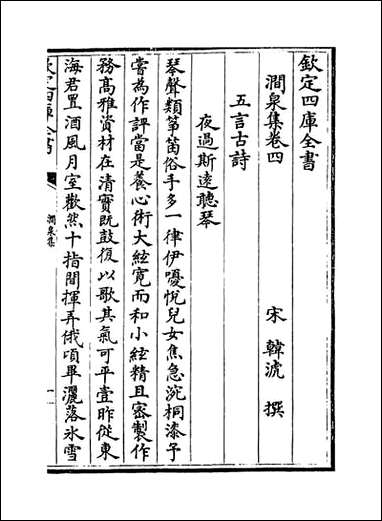 欽定四庫全書
澗泉集卷四
宋 韓淲 撰
五言古詩
夜過斯遠聽琴
琴聲類箏笛俗手多一律伊嚘恱兒女焦急涴桐漆子
嘗為作評當是養心術大絃寛而和小絃精且宻製作
務髙雅資材在清實既鼓復以歌其氣可平壹昨従東
海君置酒風月室歡然十指間揮弄俄頃畢灑落氷雪
欽定四庫全書
澗泉集
一